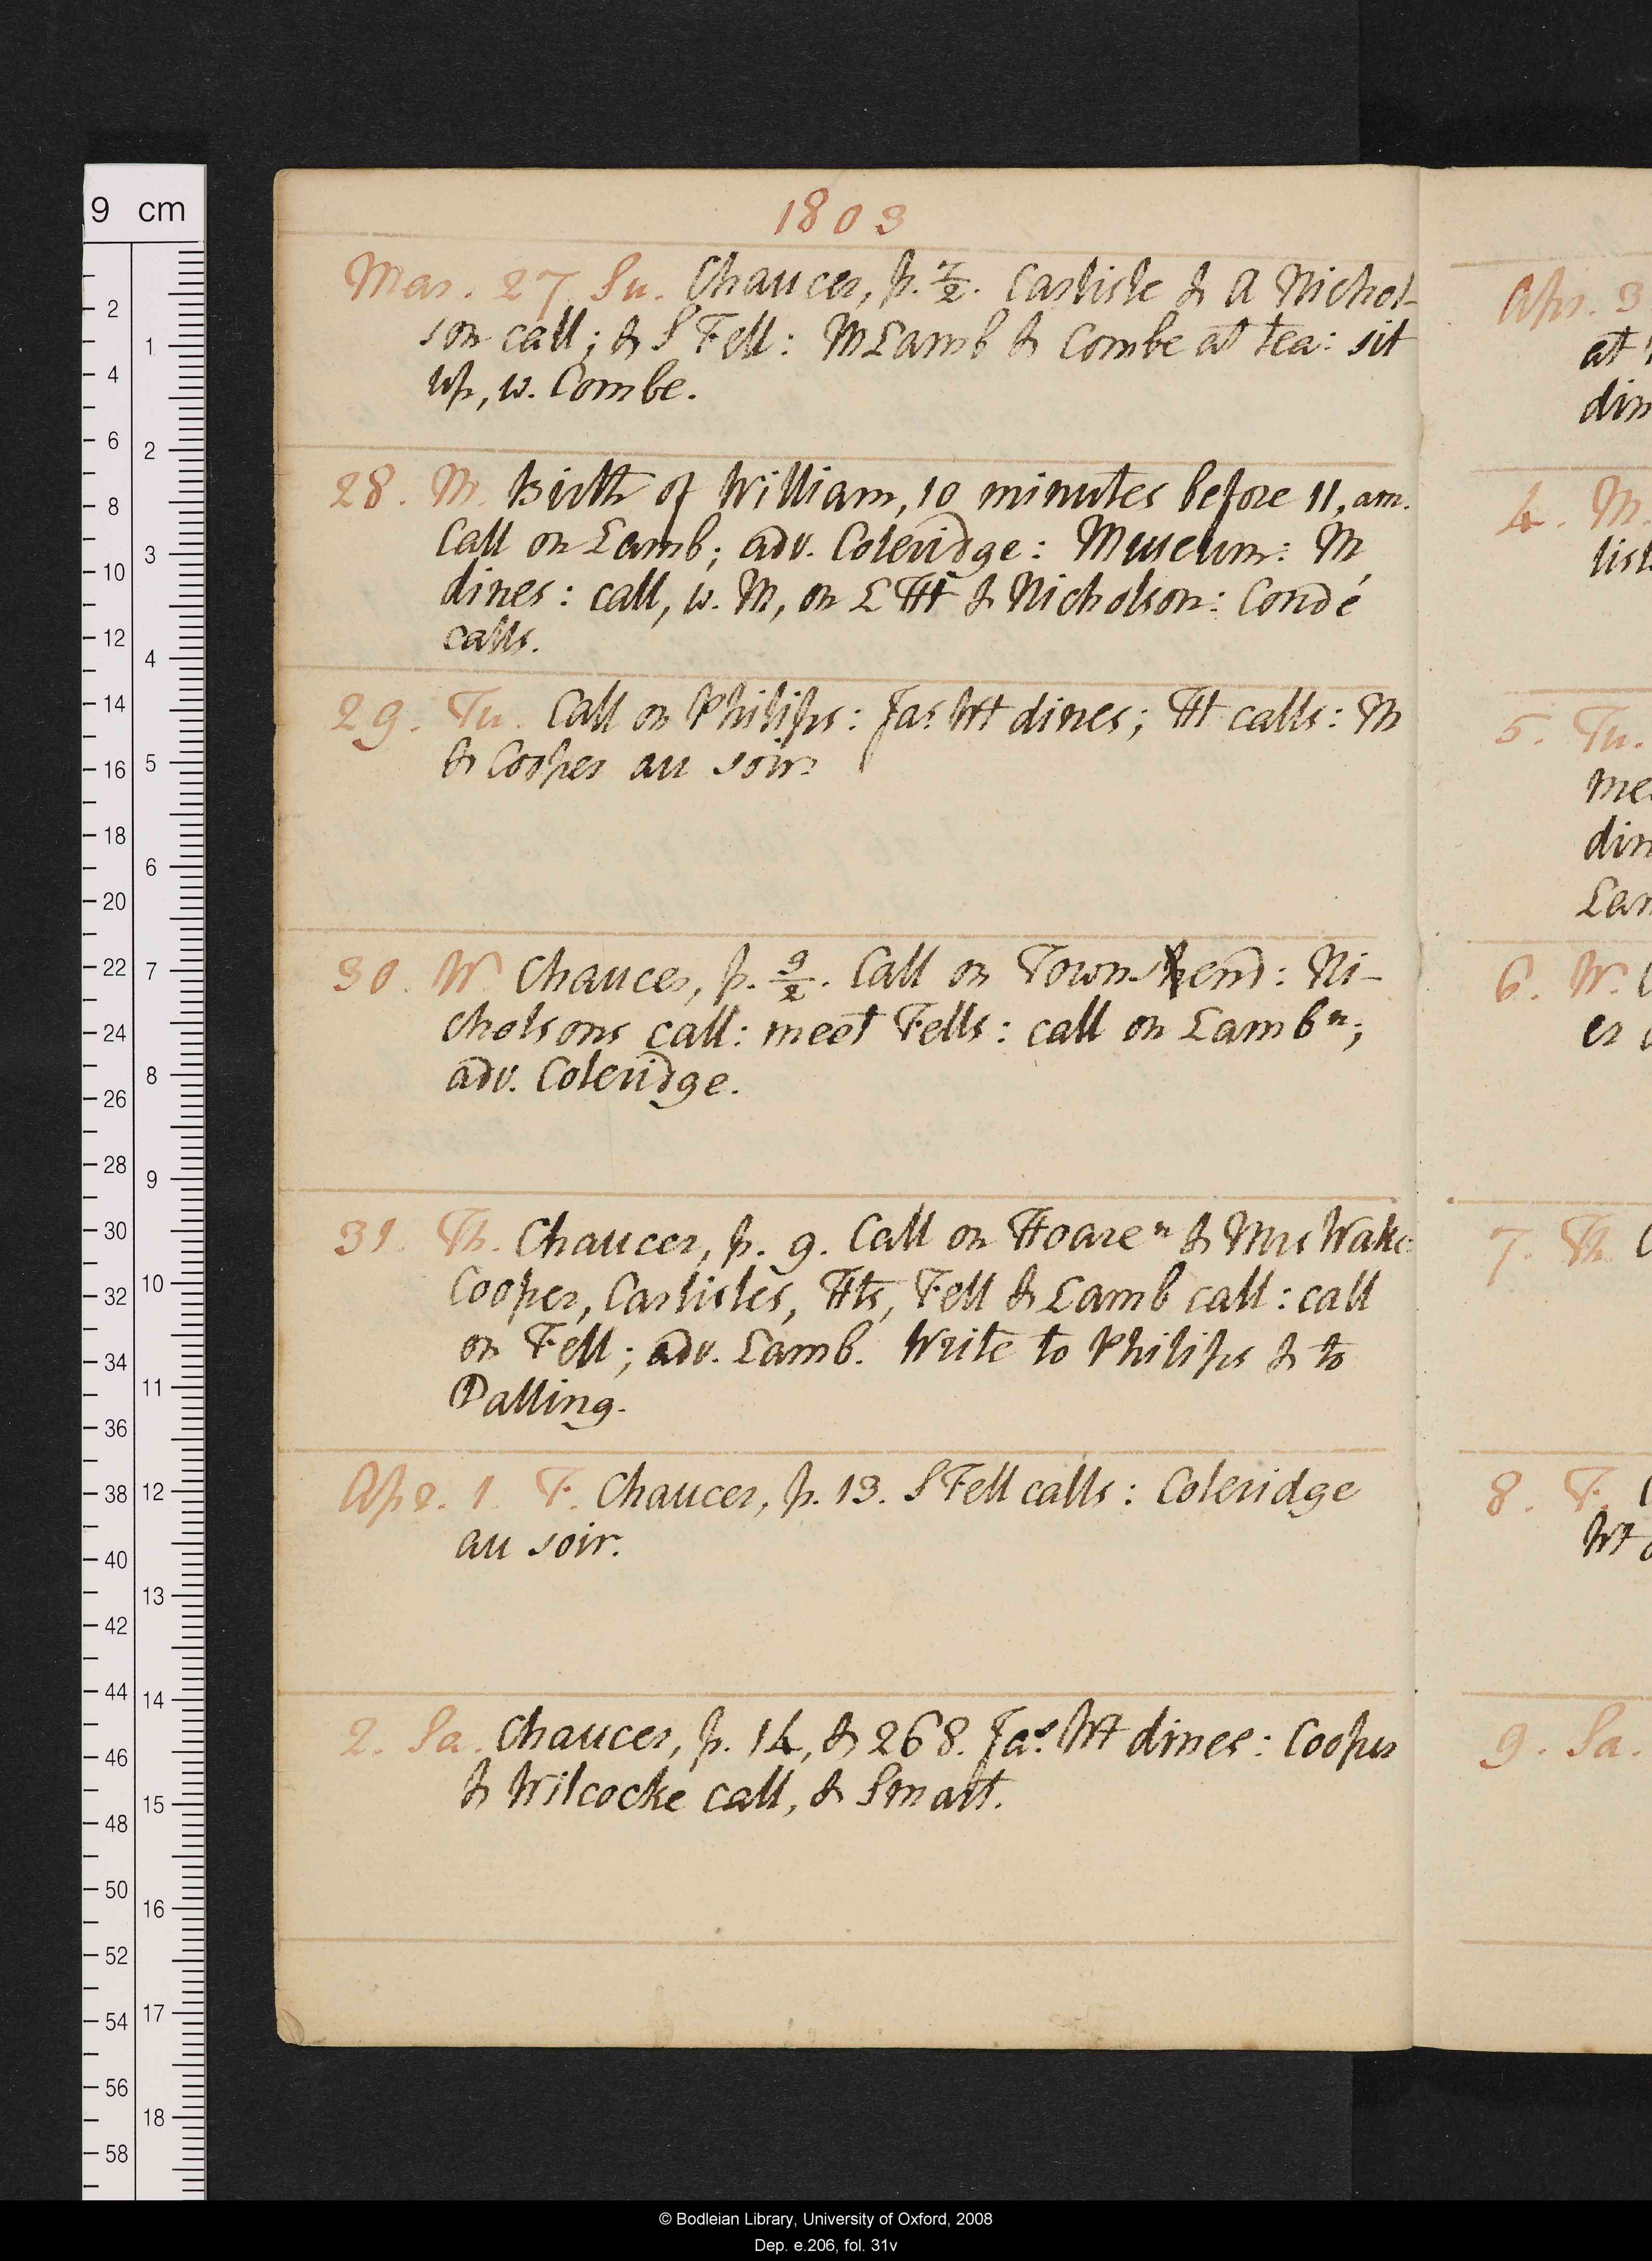 1803
Mar. 27. Su. Chaucer, p. 7/2. Carlisle & A Nichol-
son call; & S Fell: M Lamb & Combe at tea: sit
up, w. Combe.
28. M. Birth of William, 10 minutes before 11, am.
Call on Lamb; adv. Coleridge: Museum: M
dines: call, w. M, on L Ht & Nicholson: Condé
calls.
29. Tu. Call on Philips: Jas Wt dines; Ht calls: M
& Cooper au soir.
30. W. Chaucer, p. 9/2. Call on Townshend: Ni-
cholsons call: meet Fells: call on Lamb n;
adv. Coleridge.
31. Th. Chaucer, p. 9. Call on Hoare n & Mrs Wake
Cooper, Carlisles, Hts, Fell & Lamb call: call
on Fell; adv. Lamb. Write to Philips & to
Dalling.
Apr. 1. F. Chaucer, p. 13. S Fell calls: Coleridge
au soir.
2. Sa. Chaucer, p. 14, & 268. Jas. Wt dines: Cooper
& Wilcocke call, & Smart.
Apr. 3
at
din
4. M.
lisl
5. Tu.
me
din
Lam
6. W.
er
7. Th.
8. F.
Wt
9. Sa.
9 cm
2
4
6
8
10
12
14
16
18
20
22
24
26
28
30
32
34
36
38
40
42
44
46
48
50
52
54
56
58
1
2
3
4
5
6
7
8
9
10
11
12
13
14
15
16
17
18
© Bodleian Library, University of Oxford, 2008
Dep. e.206, fol. 31v